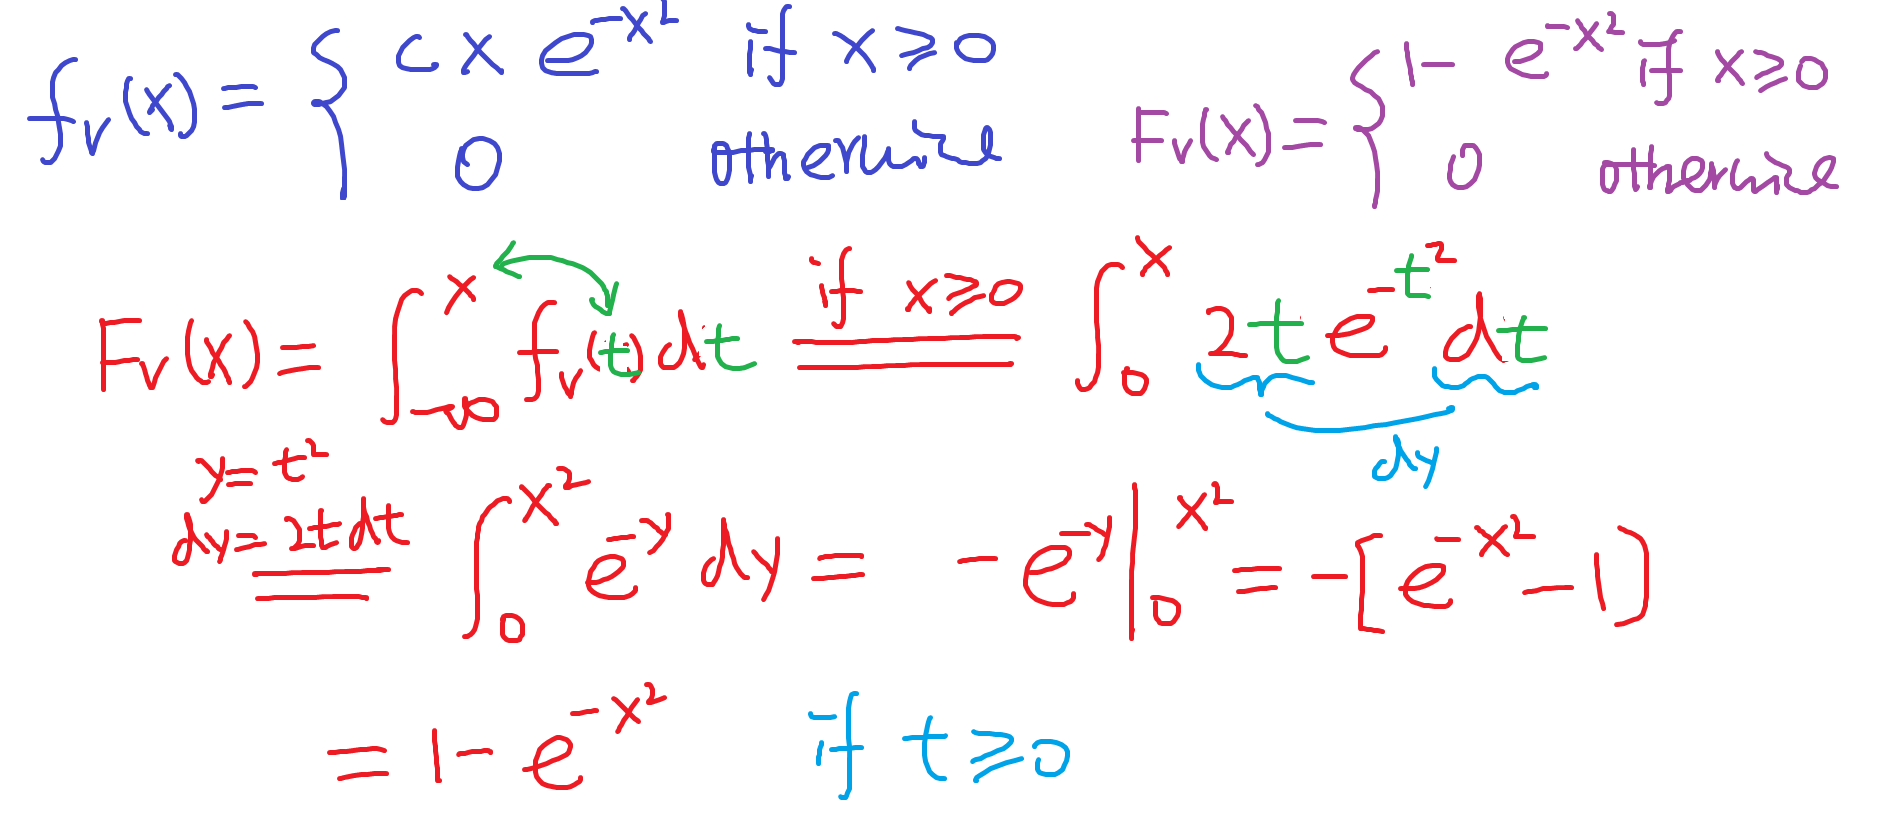 f_V(x) = { c x e^{-x^2} if x ≥ 0
0 otherwise
F_V(x) = { 1 - e^{-x^2} if x ≥ 0
0 otherwise
F_V(x) = ∫_{-∞}^{x} f_V(t) dt = if x ≥ 0 ∫_0^x 2t e^{-t^2} dt
dy
y = t^2
dy = 2t dt
∫_0^{x^2} e^{-y} dy = -e^{-y} |_0^{x^2} = -[e^{-x^2} - 1]
= 1 - e^{-x^2} if t ≥ 0